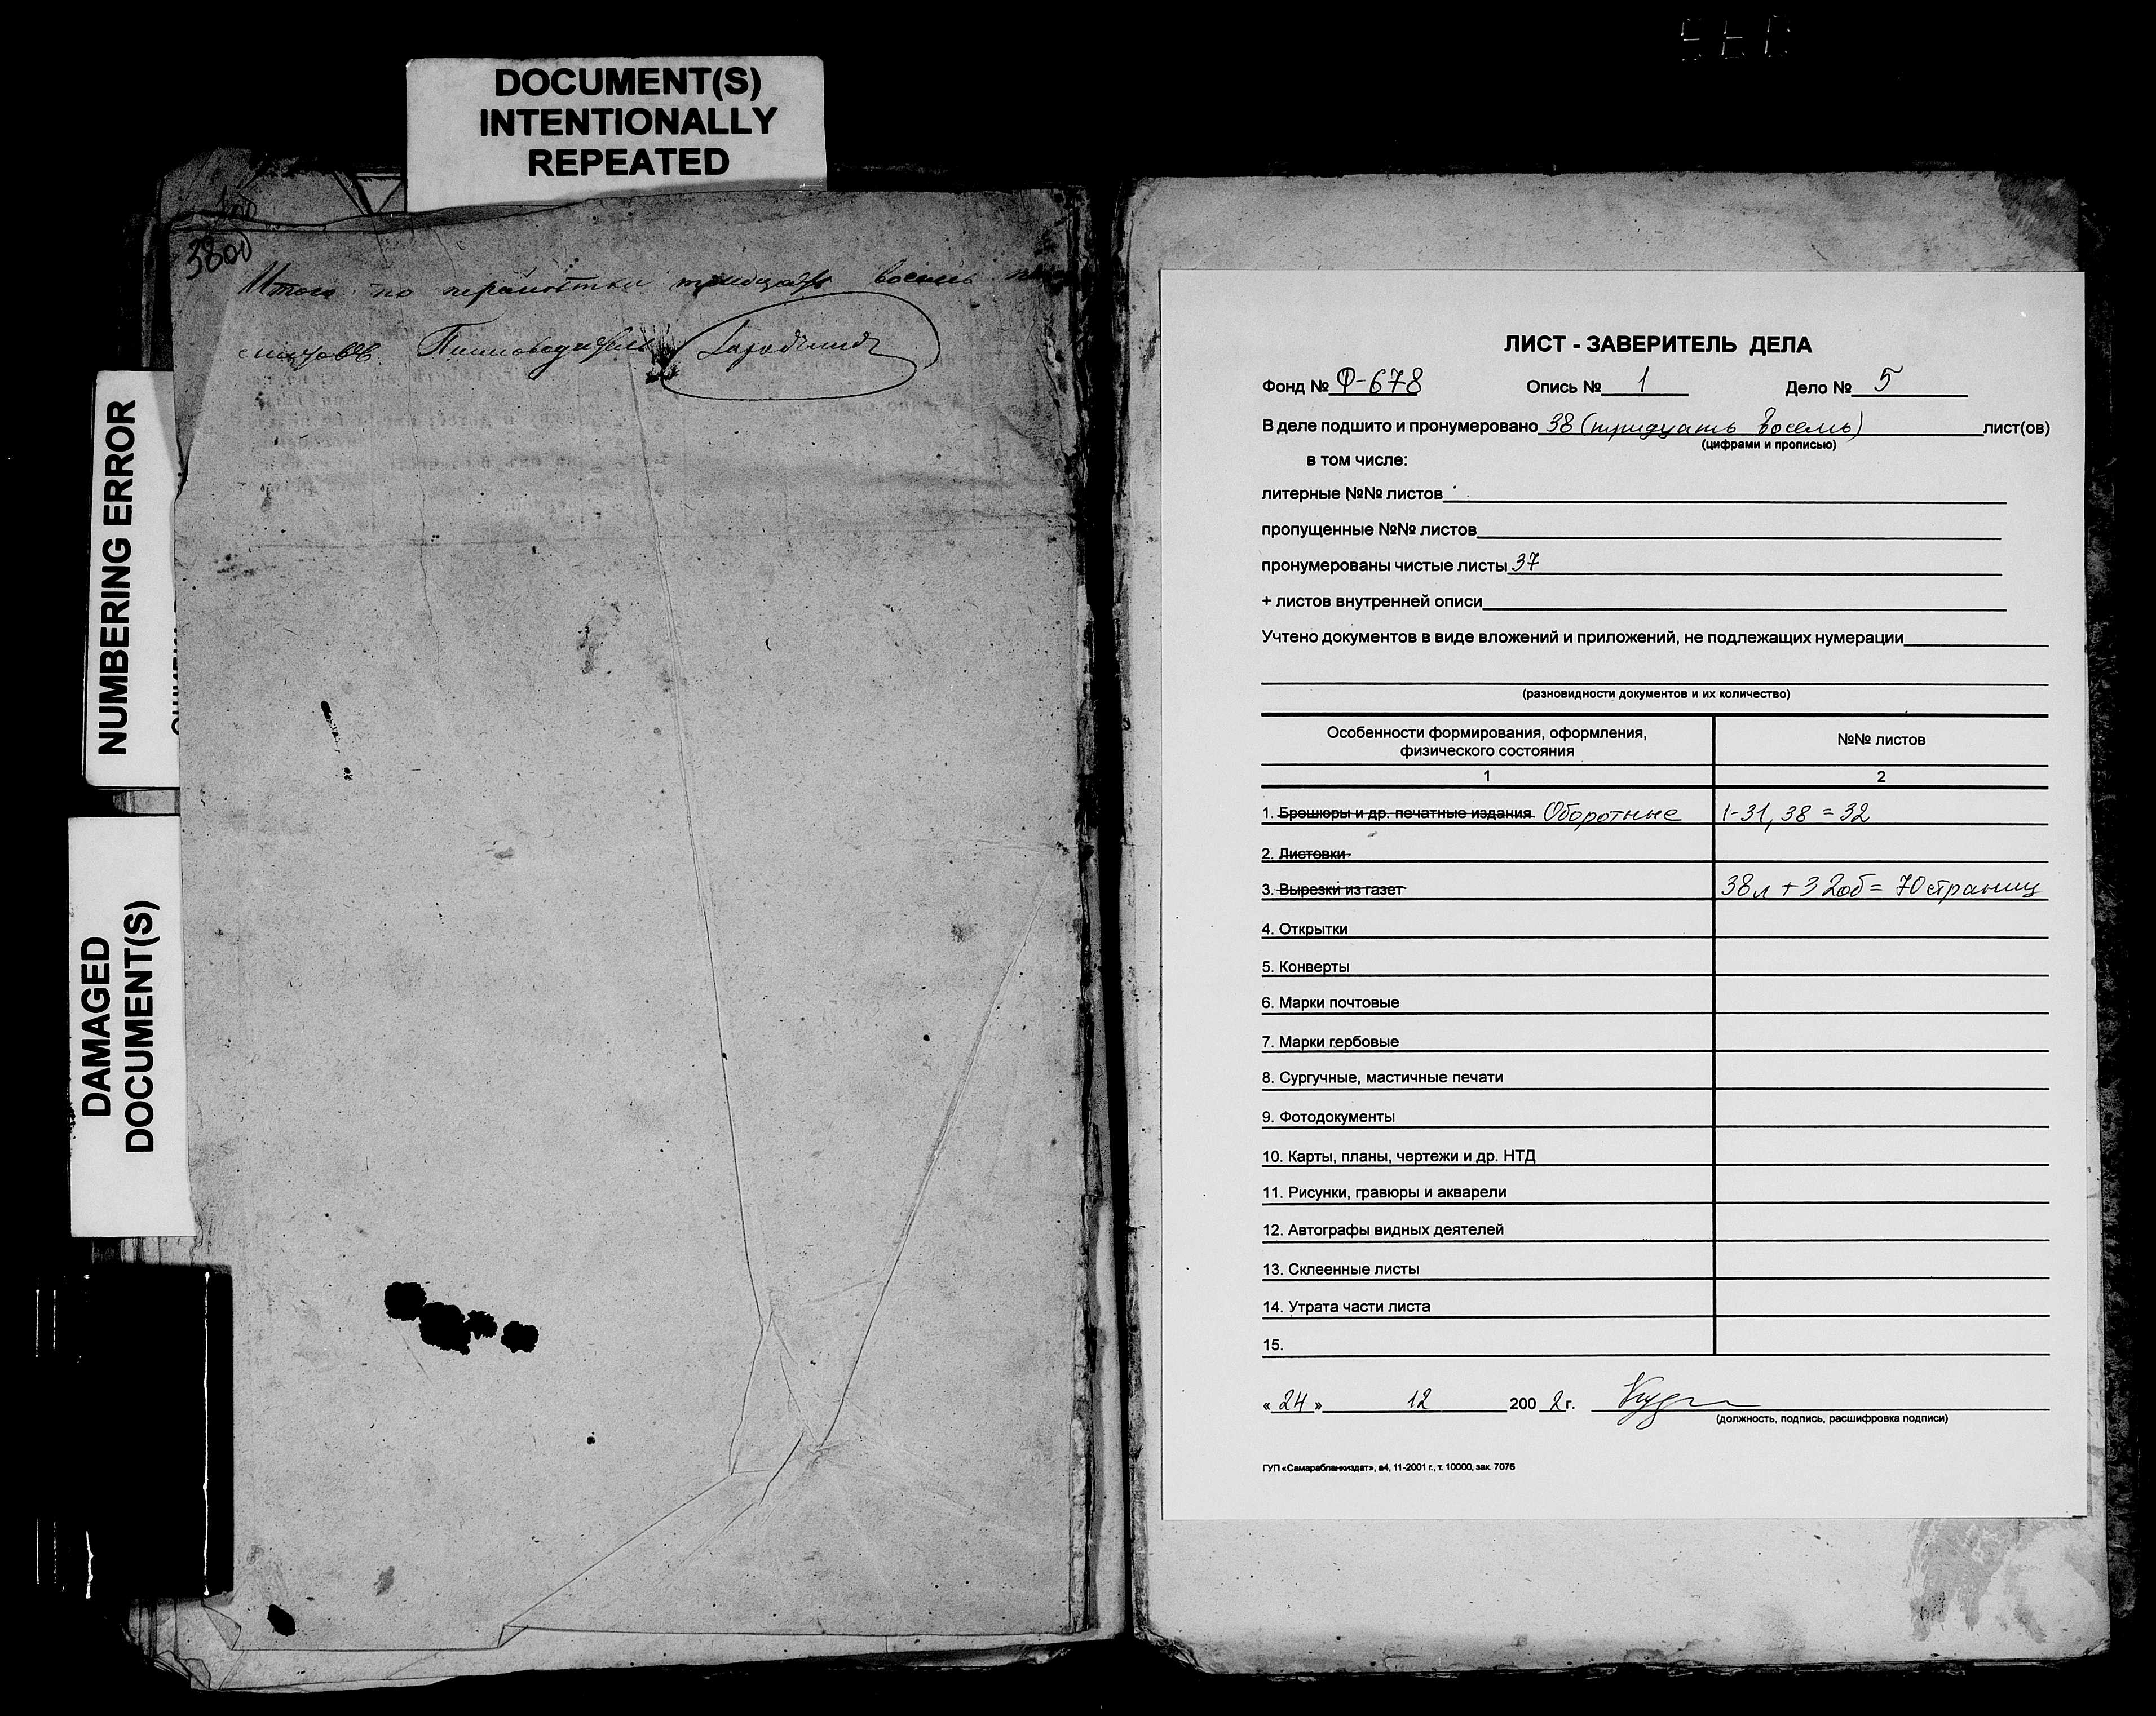 DOCUMENT(S)
INTENTIONALLY
REPEATED
NUMBERING ERROR
DAMAGED
DOCUMENT(S)
38об
Итого по тридцать восемь
ЛИСТ - ЗАВЕРИТЕЛЬ ДЕЛА
Фонд № Ф-678 Опись № 1 Дело № 5
В деле подшито и пронумеровано 38 (тридцать восемь) лист(ов)
(цифрами и прописью)
в том числе:
литерные №№ листов
пропущенные №№ листов
пронумерованы чистые листы 37
+ листов внутренней описи
Учтено документов в виде вложений и приложений, не подлежащих нумерации
(разновидности документов и их количество)
Особенности формирования, оформления, №№ листов
физического состояния
1 2
1. Брошюры и др. печатные издания Оборотные 1-31, 38 = 32
2. Листовки
3. Вырезки из газет 38л + 32об = 70 страниц
4. Открытки
5. Конверты
6. Марки почтовые
7. Марки гербовые
8. Сургучные, мастичные печати
9. Фотодокументы
10. Карты, планы, чертежи и др. НТД
11. Рисунки, гравюры и акварели
12. Автографы видных деятелей
13. Склеенные листы
14. Утрата части листа
15.
« 24 » 12 200 2 г.
(должность, подпись, расшифровка подписи)
ГУП «Самарабланкиздат», а4, 11-2001 г., т. 10000, зак. 7076